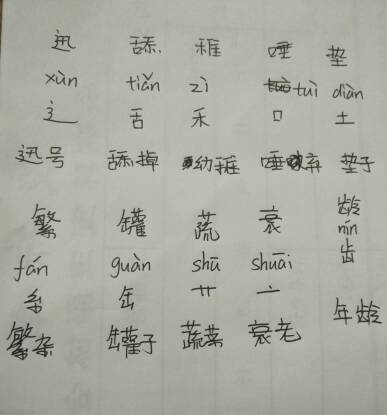 迅 舔 稚 唾 垫
xùn tiǎn zì tuì diàn
辶 舌 禾 口 土
迅号 舔掉 幼稚 唾弃 垫子
繁 罐 蔬 衰 龄
fán guàn shū shuāi nín
糸 缶 艹 亠 齿
繁杂 罐子 蔬菜 衰老 年龄